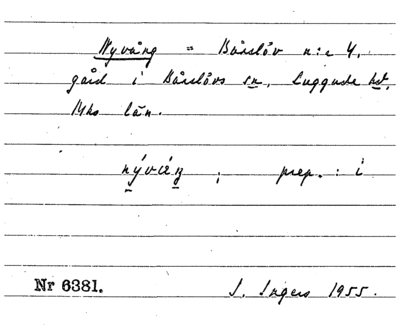 Nyvång = Bårslöv n:r 4,
gård i Bårslövs sn, Luggude hd,
Mhs län.
prep. : i
Nr 6381.
I. Ingers 1955.